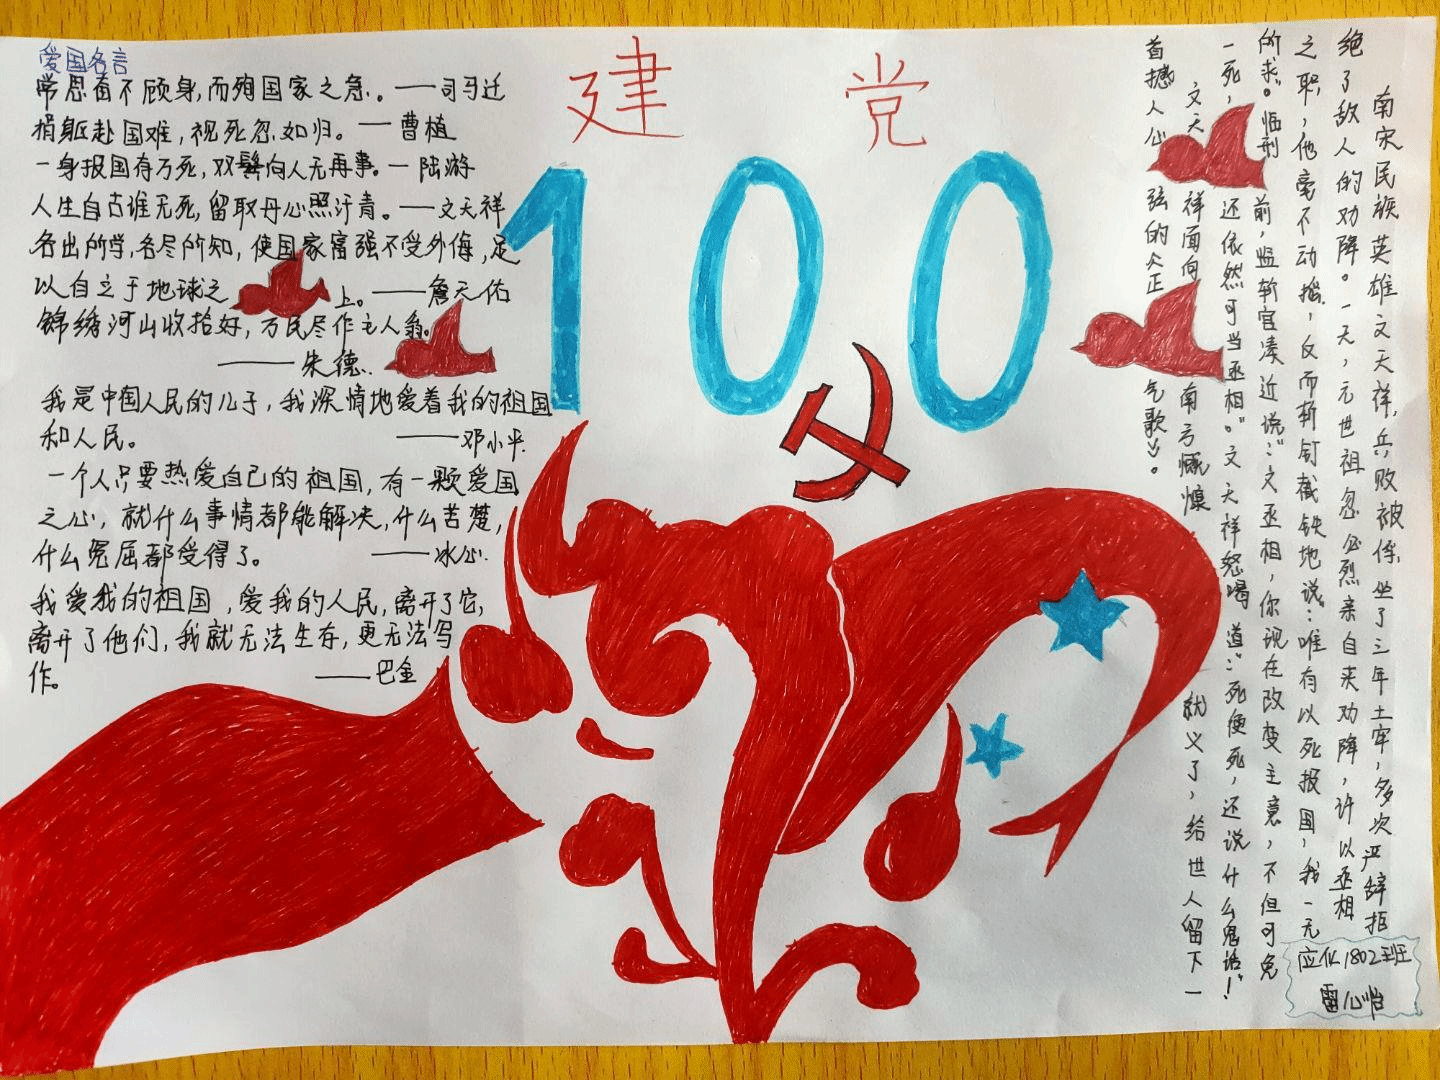 建党
100
爱国名言
常思奋不顾身,而殉国家之急。——司马迁
捐躯赴国难,视死忽如归。—曹植
一身报国有万死,双鬓向人无再事。—陆游
人生自古谁无死,留取丹心照汗青。——文天祥
各出所学,各尽所知,使国家富强不受外侮,足
以自立于地球之上。——詹天佑
锦绣河山收拾好,万民尽作主人翁。
——朱德.
我是中国人民的儿子,我深情地爱着我的祖国
和人民。——邓小平.
一个人只要热爱自己的祖国,有一颗爱国
之心,就什么事情都能解决,什么苦楚,
什么冤屈都受得了。——冰心.
我爱我的祖国,爱我的人民,离开了它,
离开了他们,我就无法生存,更无法写
作。——巴金
南宋民族英雄文天祥,兵败被俘,坐了三年土牢,多次严辞拒
绝了敌人的劝降。一天,元世祖忽必烈亲自来劝降,许以丞相
之职,他毫不动摇,反而斩钉截铁地说:“唯有以死报国,我一无
所求”。临刑前,监斩官凑近说:“文丞相,你现在改变主意,不但可免
一死,还依然可当丞相。”文天祥怒喝道:“死便死,还说什么鬼话”!
文天祥面向南方慷慨就义了,给世人留下一
首撼人心弦的《正气歌》。
应化1802班
雷心怡